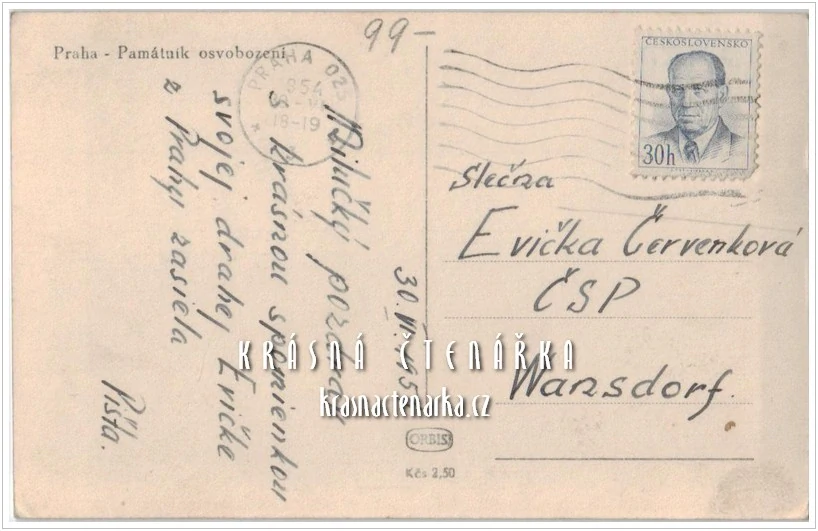 99-
Praha - Památník osvobození
PRAHA 025
18-19
ČESKOSLOVENSKO
30h
Milučký pozdrav
s krásnou spomienkou
svojej drahej Evičke
z Prahy zasiela
Pišta.
30. VI. 195
Slečna
Evička Červenková
ČSP
Warnsdorf.
KRÁSNÁ ČTENÁŘKA
krasnactenarka.cz
ORBIS
Kčs 2,50